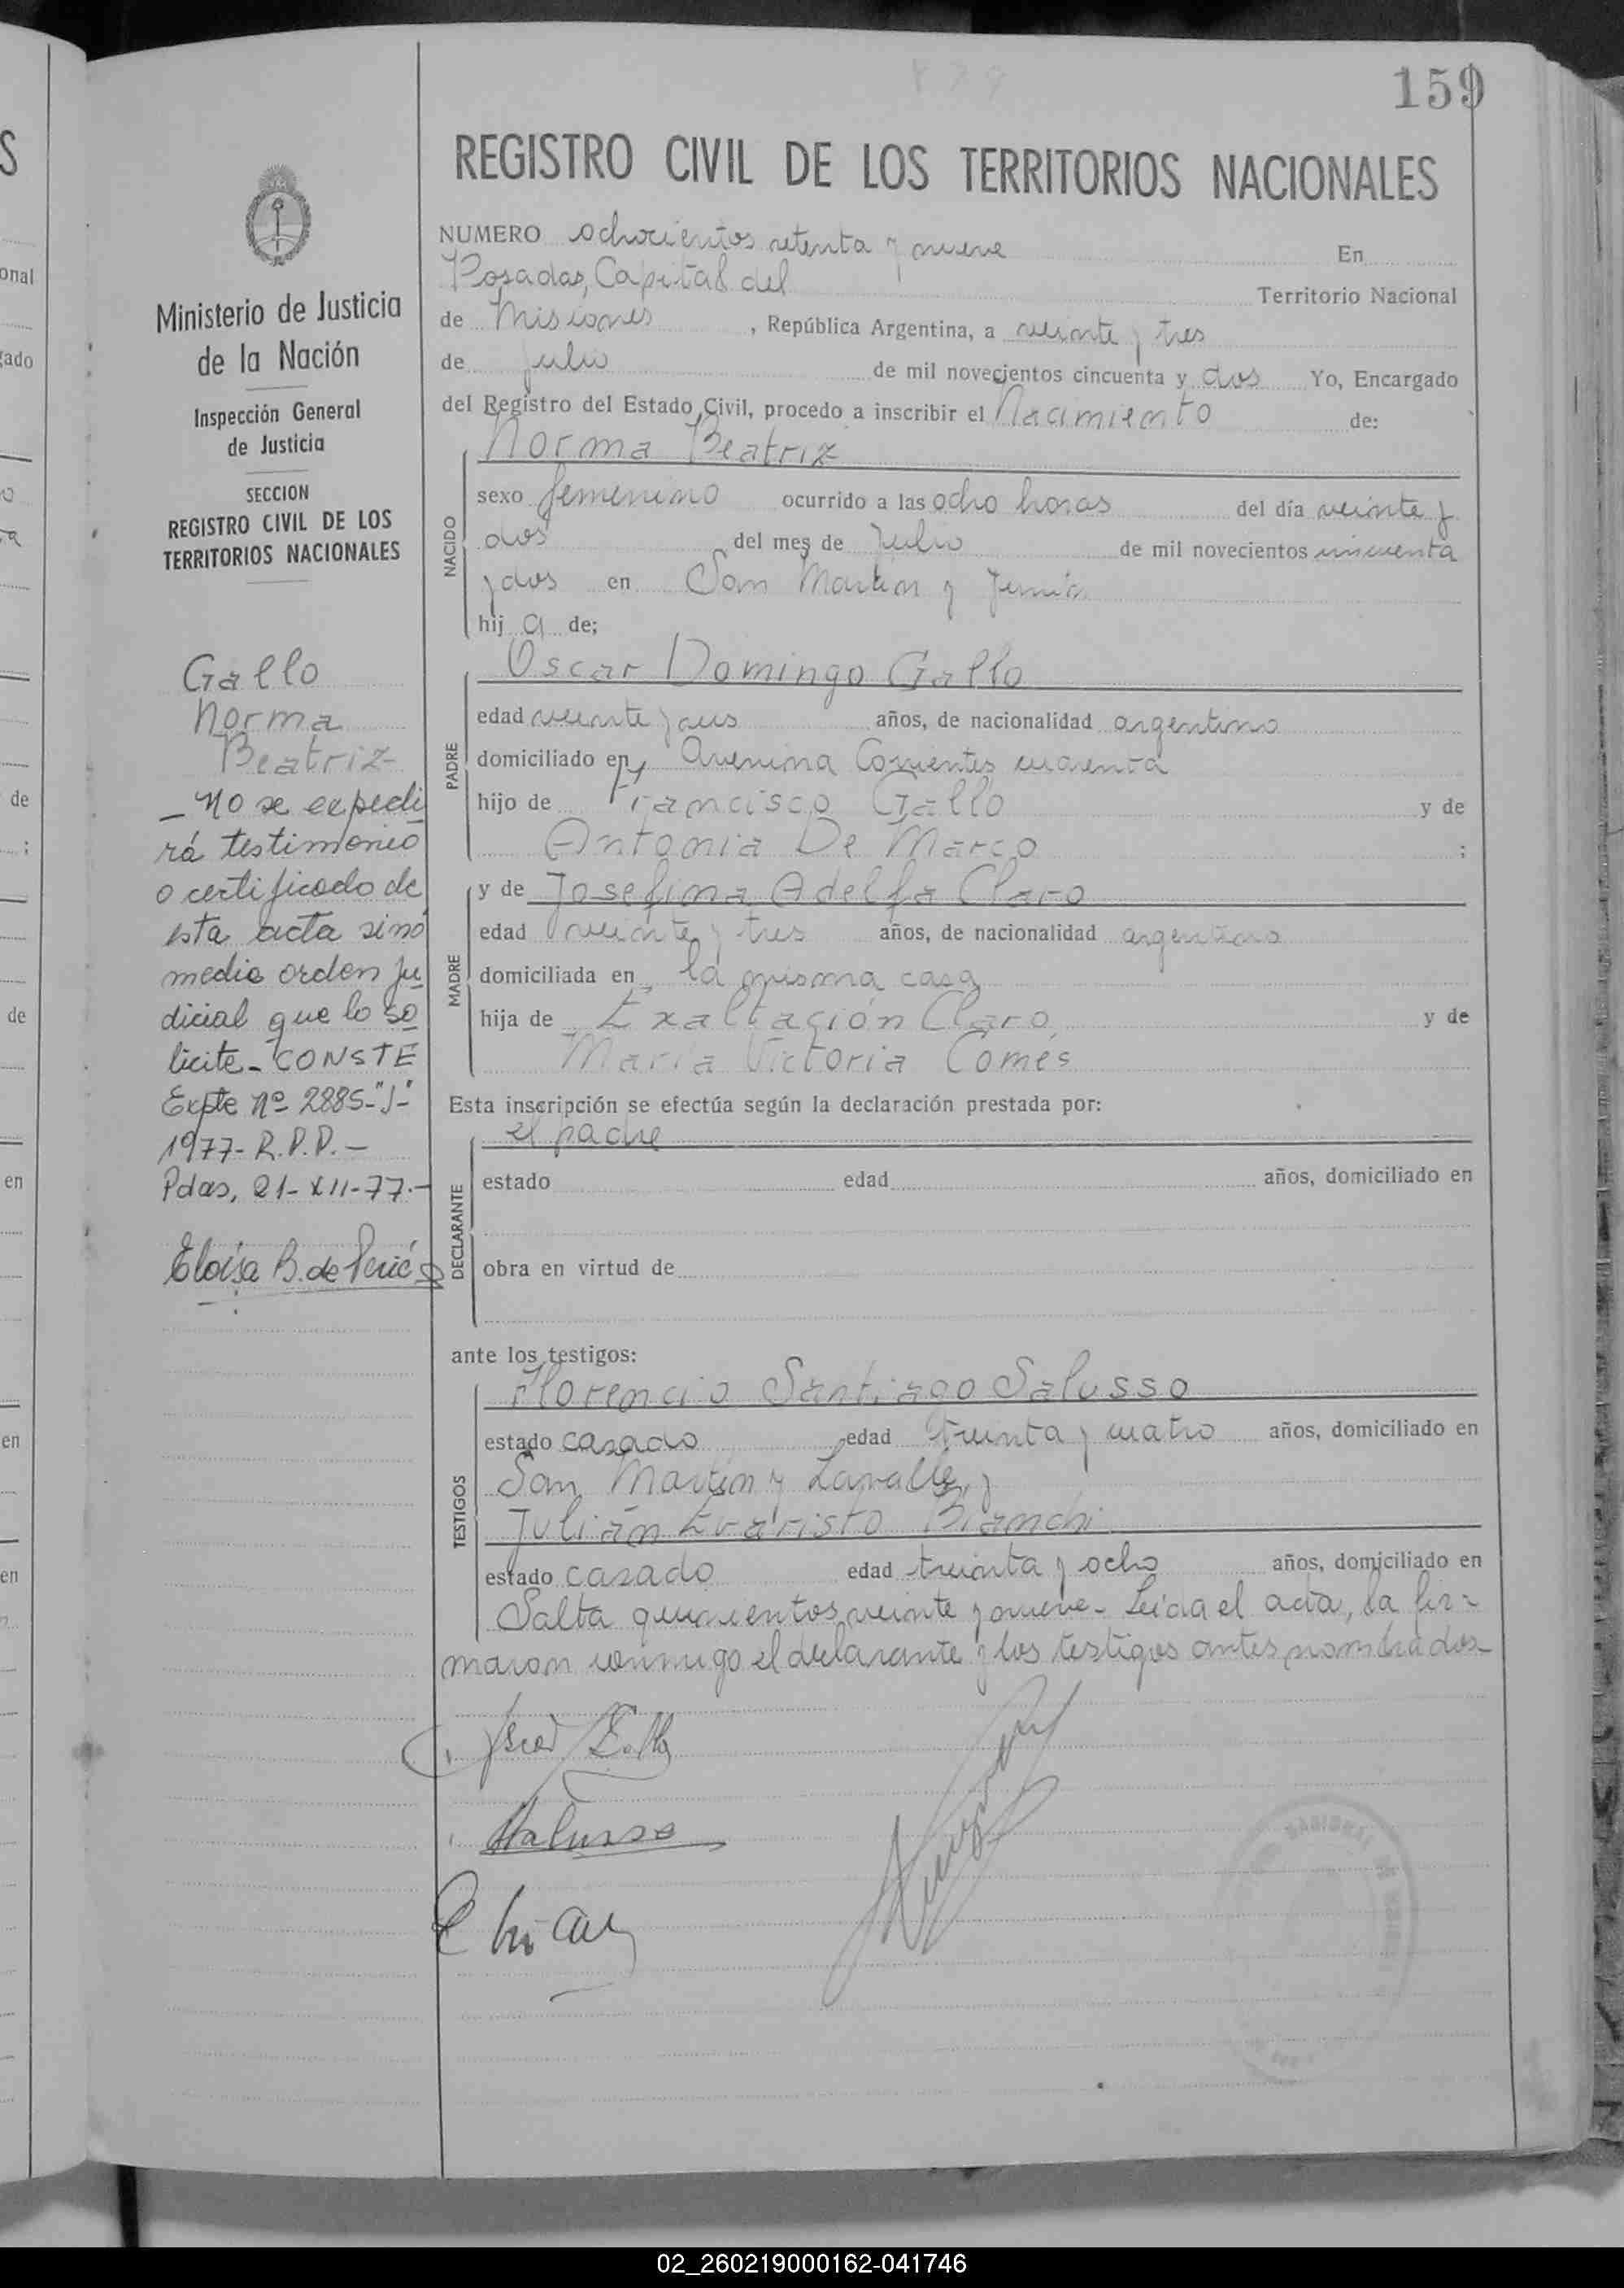 159
879
REGISTRO CIVIL DE LOS TERRITORIOS NACIONALES
NUMERO ochocientos setenta y nueve En
Posadas, Capital del Territorio Nacional
de Misiones, República Argentina, a veinte y tres
de julio de mil novecientos cincuenta y dos Yo, Encargado
del Registro del Estado Civil, procedo a inscribir el Nacimiento de:
NACIDO
Norma Beatriz
sexo femenino ocurrido a las ocho horas del día veinte y
dos del mes de Julio de mil novecientos cincuenta
y dos en San Martin y Junin
hij a de;
PADRE
Oscar Domingo Gallo
edad veinte y años, de nacionalidad argentino
domiciliado en Corrientes cuarenta
hijo de Francisco Gallo y de
Antonia De Marco ;
MADRE
y de Josefina Adelfa Claro
edad veinte y tres años, de nacionalidad argentina
domiciliada en la misma casa
hija de Exaltación Claro y de
Maria Victoria Comés
Esta inscripción se efectúa según la declaración prestada por:
DECLARANTE
el padre
estado edad años, domiciliado en
obra en virtud de
ante los testigos:
TESTIGOS
Florencio Santiago Salusso
estado casado edad treinta y cuatro años, domiciliado en
San Martin y Lavalle, y
Julián Evaristo Bianchi
estado casado edad treinta y ocho años, domiciliado en
Salta quinientos veinte y nueve - Leida el acta, la fir-
maron conmigo el declarante y los testigos antes nombrados-
Ministerio de Justicia
de la Nación
Inspección General
de Justicia
SECCION
REGISTRO CIVIL DE LOS
TERRITORIOS NACIONALES
Gallo
Norma
Beatriz
- No se expedi
rá testimonio
o certificado de
esta acta sinó
medie orden ju
dicial que lo so
licite - CONSTE
Expte Nº 2885-"J"-
1977- R.P.P.-
Pdas, 21-XII-77.-
Eloisa B. de
02_260219000162-041746